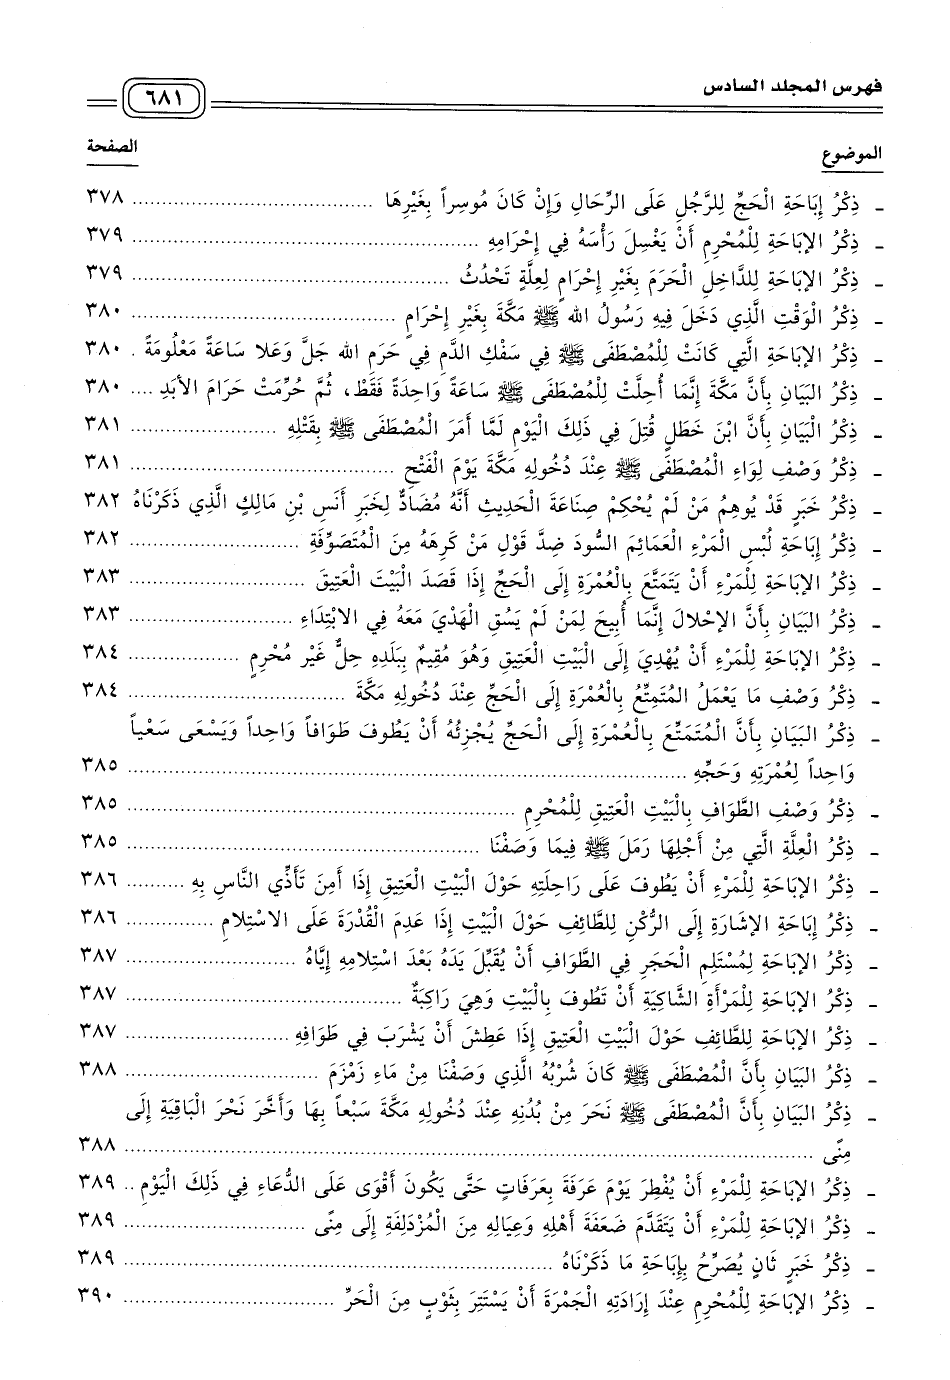 فهرس المجلد السادس
٦٨١
الموضوع الصفحة
- ذِكْرُ إِبَاحَةِ الْحَجِّ لِلرَّجُلِ عَلَى الرِّحَالِ وَإِنْ كَانَ مُوسِراً بِغَيْرِهَا ........ ٣٧٨
- ذِكْرُ الإِبَاحَةِ لِلْمُحْرِمِ أَنْ يَغْسِلَ رَأْسَهُ فِي إِحْرَامِهِ ........ ٣٧٩
- ذِكْرُ الإِبَاحَةِ لِلدَّاخِلِ الْحَرَمَ بِغَيْرِ إِحْرَامٍ لِعِلَّةٍ تَحْدُثُ ........ ٣٧٩
- ذِكْرُ الْوَقْتِ الَّذِي دَخَلَ فِيهِ رَسُولُ الله ﷺ مَكَّةَ بِغَيْرِ إِحْرَامٍ ........ ٣٨٠
- ذِكْرُ الإِبَاحَةِ الَّتِي كَانَتْ لِلْمُصْطَفَى ﷺ فِي سَفْكِ الدَّمِ فِي حَرَمِ الله جَلَّ وَعَلا سَاعَةً مَعْلُومَةً . ٣٨٠
- ذِكْرُ البَيَانِ بِأَنَّ مَكَّةَ إِنَّمَا أُحِلَّتْ لِلْمُصْطَفَى ﷺ سَاعَةً وَاحِدَةً فَقَطْ، ثُمَّ حُرِّمَتْ حَرَامَ الأَبَدِ .... ٣٨٠
- ذِكْرُ الْبَيَانِ بِأَنَّ ابْنَ خَطَلٍ قُتِلَ فِي ذَلِكَ الْيَوْمِ لَمَّا أَمَرَ الْمُصْطَفَى ﷺ بِقَتْلِهِ ........ ٣٨١
- ذِكْرُ وَصْفِ لِوَاءِ الْمُصْطَفَى ﷺ عِنْدَ دُخُولِهِ مَكَّةَ يَوْمَ الْفَتْحِ ........ ٣٨١
- ذِكْرُ خَبَرٍ قَدْ يُوهِمُ مَنْ لَمْ يُحْكِمْ صِنَاعَةَ الْحَدِيثِ أَنَّهُ مُضَادٌّ لِخَبَرِ أَنَسِ بْنِ مَالِكٍ الَّذِي ذَكَرْنَاهُ ٣٨٢
- ذِكْرُ إِبَاحَةِ لُبْسِ الْمَرْءِ الْعَمَائِمَ السُّودَ ضِدَّ قَوْلِ مَنْ كَرِهَهُ مِنَ الْمُتَصَوِّفَةِ ........ ٣٨٢
- ذِكْرُ الإِبَاحَةِ لِلْمَرْءِ أَنْ يَتَمَتَّعَ بِالْعُمْرَةِ إِلَى الْحَجِّ إِذَا قَصَدَ الْبَيْتَ الْعَتِيقَ ........ ٣٨٣
- ذِكْرُ البَيَانِ بِأَنَّ الإِحْلالَ إِنَّمَا أُبِيحَ لِمَنْ لَمْ يَسُقِ الْهَدْيَ مَعَهُ فِي الابْتِدَاءِ ........ ٣٨٣
- ذِكْرُ الإِبَاحَةِ لِلْمَرْءِ أَنْ يُهْدِيَ إِلَى الْبَيْتِ الْعَتِيقِ وَهُوَ مُقِيمٌ بِبَلَدِهِ حِلٌّ غَيْر مُحْرِمٍ ........ ٣٨٤
- ذِكْرُ وَصْفِ مَا يَعْمَلُ الْمُتَمِتِّعُ بِالْعُمْرَةِ إِلَى الْحَجِّ عِنْدَ دُخُولِهِ مَكَّةَ ........ ٣٨٤
- ذِكْرُ البَيَانِ بِأَنَّ الْمُتَمَتِّعَ بِالْعُمْرَةِ إِلَى الْحَجِّ يُجْزِئُهُ أَنْ يَطُوفَ طَوَافاً وَاحِداً وَيَسْعَى سَعْياً
وَاحِداً لِعُمْرَتِهِ وَحَجِّهِ ........ ٣٨٥
- ذِكْرُ وَصْفِ الطَّوَافِ بِالْبَيْتِ الْعَتِيقِ لِلْمُحْرِمِ ........ ٣٨٥
- ذِكْرُ الْعِلَّةِ الَّتِي مِنْ أَجْلِهَا رَمَلَ ﷺ فِيمَا وَصَفْنَا ........ ٣٨٥
- ذِكْرُ الإِبَاحَةِ لِلْمَرْءِ أَنْ يَطُوفَ عَلَى رَاحِلَتِهِ حَوْلَ الْبَيْتِ الْعَتِيقِ إِذَا أَمِنَ تَأَذِّي النَّاسِ بِهِ ........ ٣٨٦
- ذِكْرُ إِبَاحَةِ الإِشَارَةِ إِلَى الرُّكْنِ لِلطَّائِفِ حَوْلَ الْبَيْتِ إِذَا عَدِمَ الْقُدْرَةَ عَلَى الاسْتِلامِ ........ ٣٨٦
- ذِكْرُ الإِبَاحَةِ لِمُسْتَلِمِ الْحَجَرِ فِي الطَّوَافِ أَنْ يُقَبِّلَ يَدَهُ بَعْدَ اسْتِلامِهِ إِيَّاهُ ........ ٣٨٧
- ذِكْرُ الإِبَاحَةِ لِلْمَرْأَةِ الشَّاكِيَةِ أَنْ تَطُوفَ بِالْبَيْتِ وَهِيَ رَاكِبَةٌ ........ ٣٨٧
- ذِكْرُ الإِبَاحَةِ لِلطَّائِفِ حَوْلَ الْبَيْتِ الْعَتِيقِ إِذَا عَطِشَ أَنْ يَشْرَبَ فِي طَوَافِهِ ........ ٣٨٧
- ذِكْرُ البَيَانِ بِأَنَّ الْمُصْطَفَى ﷺ كَانَ شُرْبُهُ الَّذِي وَصَفْنَا مِنْ مَاءِ زَمْزَمَ ........ ٣٨٨
- ذِكْرُ البَيَانِ بِأَنَّ الْمُصْطَفَى ﷺ نَحَرَ مِنْ بُدُنِهِ عِنْدَ دُخُولِهِ مَكَّةَ سَبْعاً بِهَا وَأَخَّرَ نَحْرَ الْبَاقِيَةِ إِلَى
مِنًى ........ ٣٨٨
- ذِكْرُ الإِبَاحَةِ لِلْمَرْءِ أَنْ يُفْطِرَ يَوْمَ عَرَفَةَ بِعَرَفَاتٍ حَتَّى يَكُونَ أَقْوَى عَلَى الدُّعَاءِ فِي ذَلِكَ الْيَوْمِ .. ٣٨٩
- ذِكْرُ الإِبَاحَةِ لِلْمَرْءِ أَنْ يَتَقَدَّمَ ضَعَفَةَ أَهْلِهِ وَعِيَالِهِ مِنَ الْمُزْدَلِفَةِ إِلَى مِنًى ........ ٣٨٩
- ذِكْرُ خَبَرٍ ثَانٍ يُصَرِّحُ بِإِبَاحَةِ مَا ذَكَرْنَاهُ ........ ٣٨٩
- ذِكْرُ الإِبَاحَةِ لِلْمُحْرِمِ عِنْدَ إِرَادَتِهِ الْجَمْرَةَ أَنْ يَسْتَتِرَ بِثَوْبٍ مِنَ الْحَرِّ ........ ٣٩٠